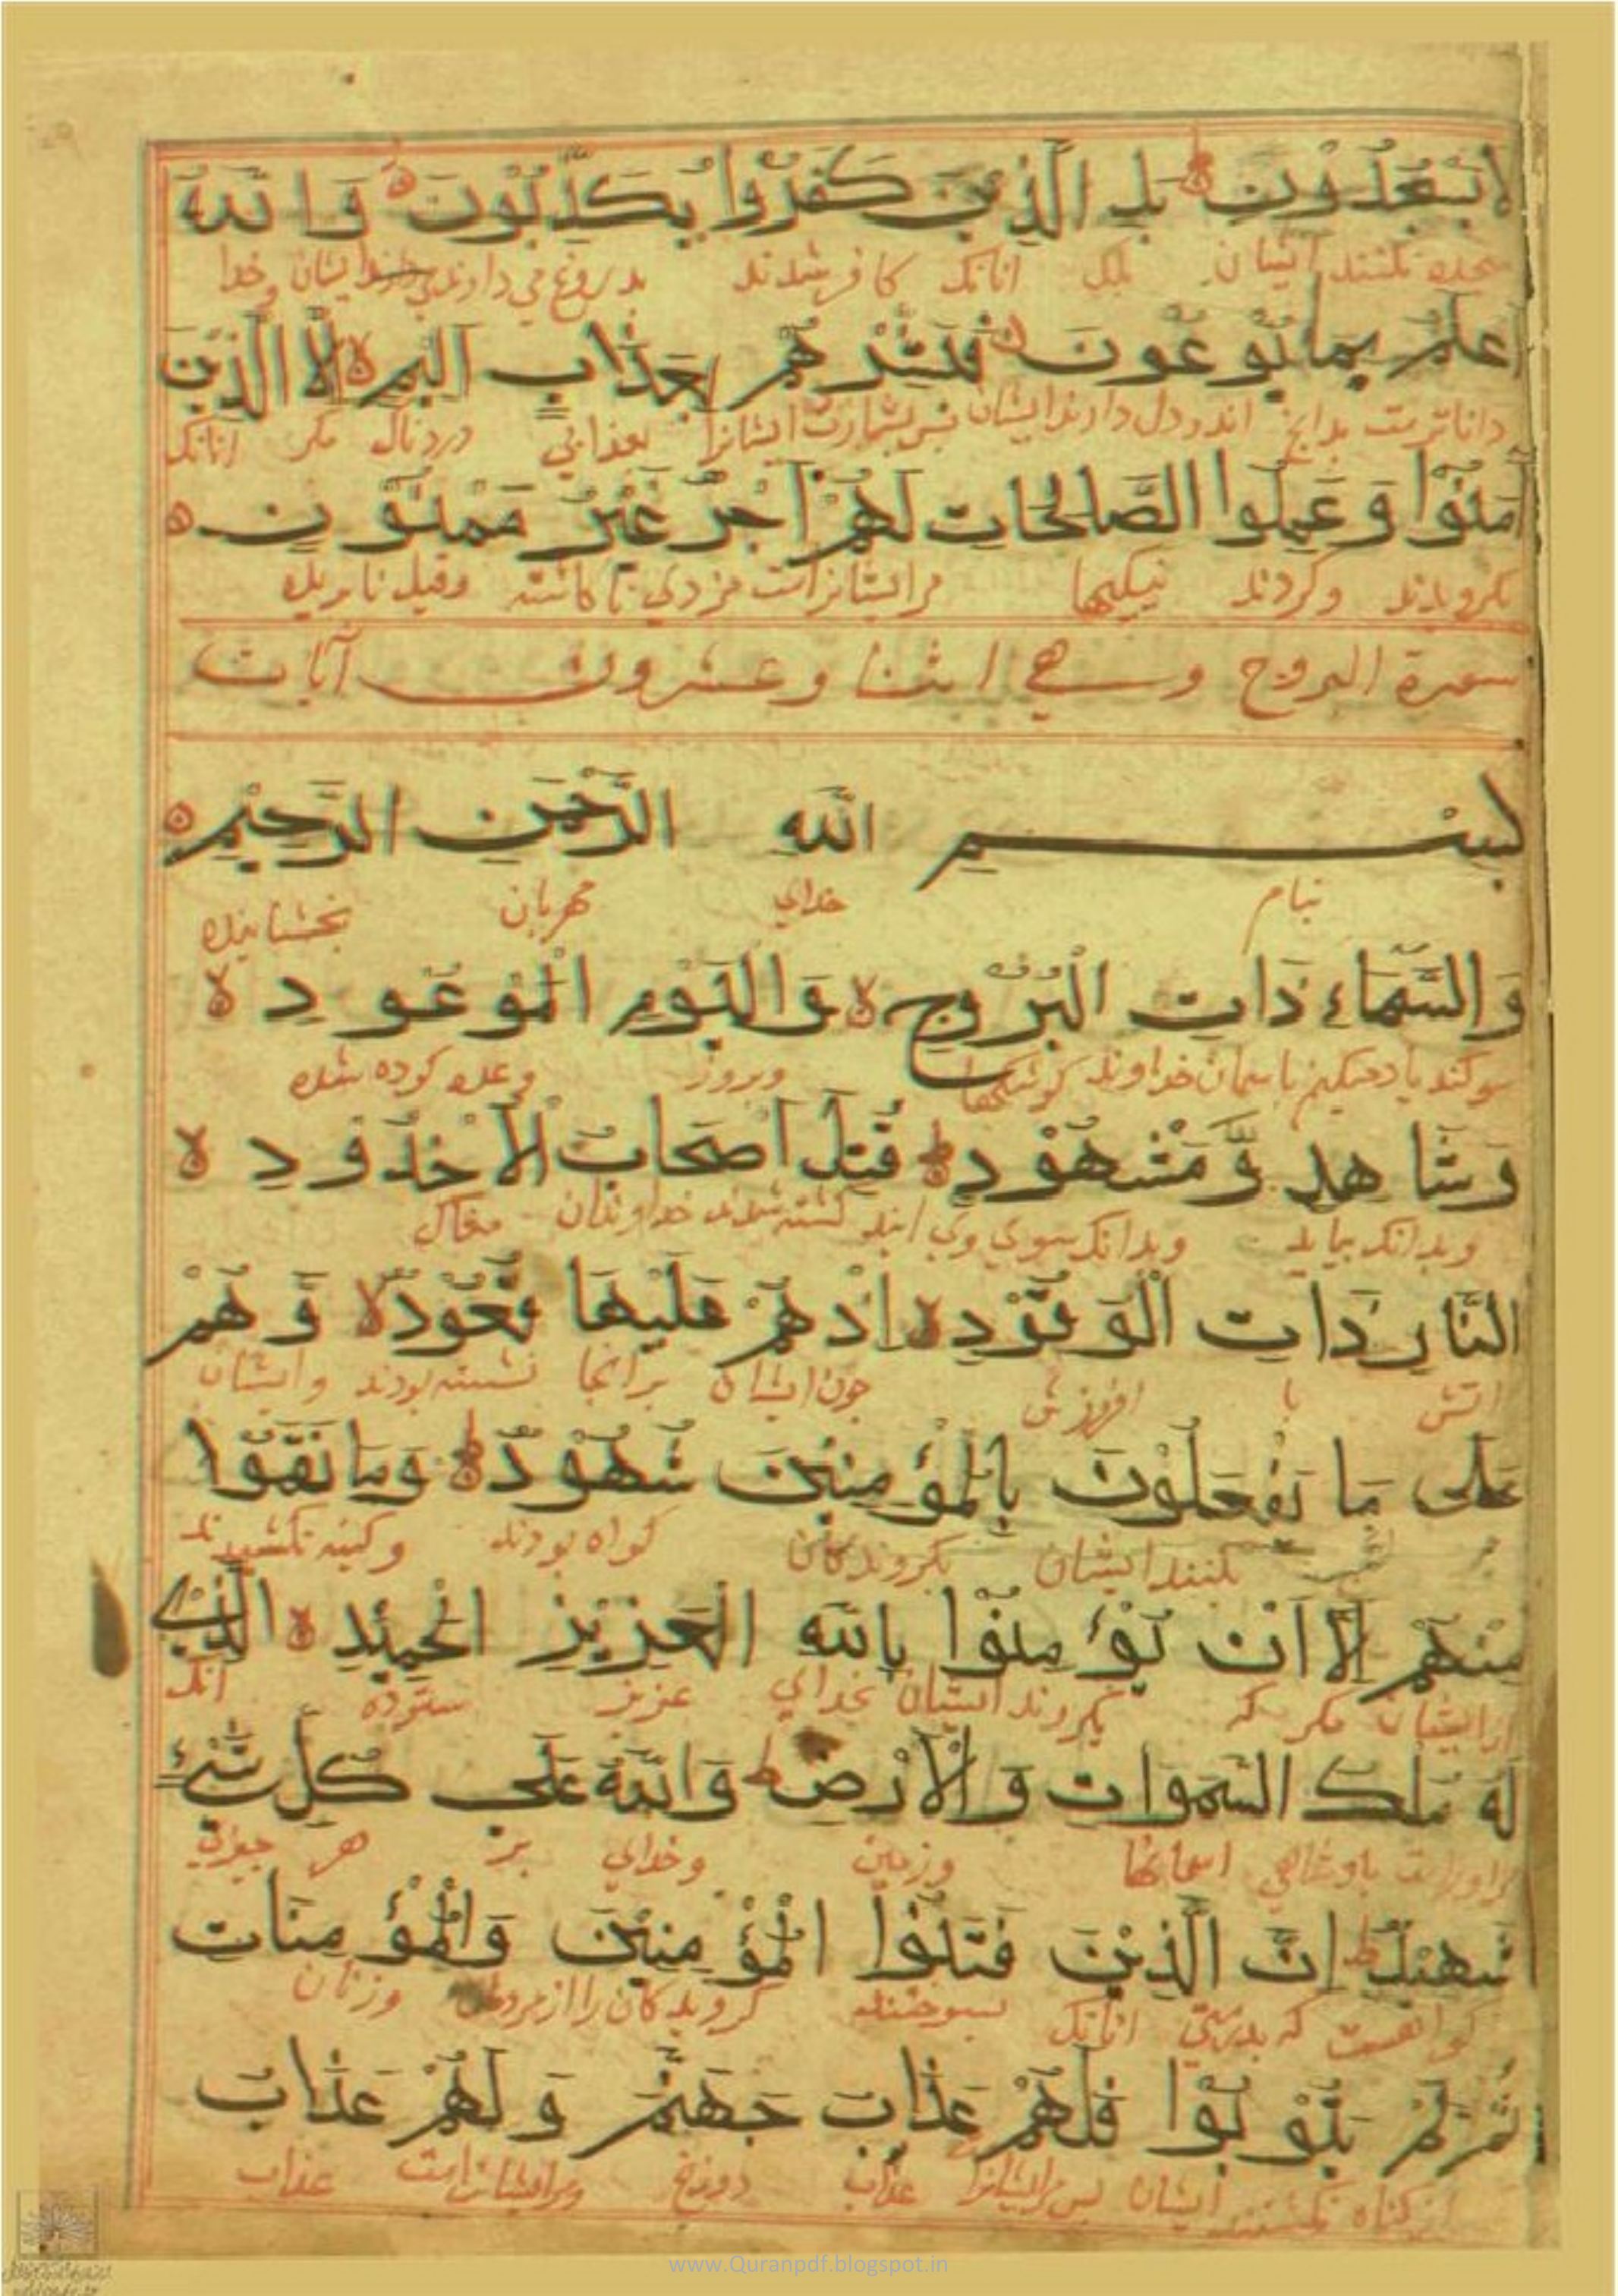 لَا يَسْجُدُونَ بَلِ الَّذِينَ كَفَرُوا يُكَذِّبُونَ وَاللّٰهُ
سجده نکنند ایشان بلک انانک کافر شدند بدروغ می دارند ایشان وخدا
اَعْلَمُ بِمَا يُوعُونَ فَبَشِّرْهُمْ بِعَذَابٍ اَلِيمٍ اِلَّا الَّذِينَ
داناترست بدانچ اندر دل دارند ایشان پس بشارت ایشانرا بعذابی دردناک مکر انانک
اٰمَنُوْا وَعَمِلُوا الصَّالِحَاتِ لَهُمْ اَجْرٌ غَيْرُ مَمْنُوْنٍ
بکرویدند وکردند نیکیها مرایشانراست مزدی ناکاسته وقیل نابریده
سورة البروج وهي اثنا وعشرون آيات
بِسْمِ اللّٰهِ الرَّحْمٰنِ الرَّحِيْمِ
بنام خدای مهربان بخشاینده
وَالسَّمَاءِ ذَاتِ الْبُرُوْجِ وَالْيَوْمِ الْمَوْعُودِ
سوکند یاد میکنم باسمان خداوند کوشکها وبروز وعده کرده شده
وَشَاهِدٍ وَّمَشْهُوْدٍ قُتِلَ اَصْحَابُ الْاُخْدُودِ
وبدانک بیاید وبدانک بسوی وی ایند کشته شدند خداوندان مغاک
النَّارِ ذَاتِ الْوَقُوْدِ اِذْ هُمْ عَلَيْهَا قُعُوْدٌ وَهُمْ
اتش با افروزش چون ایشان برانجا نشسته بودند وایشان
عَلٰى مَا يَفْعَلُوْنَ بِالْمُؤْمِنِيْنَ شُهُوْدٌ وَمَا نَقَمُوْا
بر بکنند ایشان بکروندکان کواه بودند وکینه نکشیدند
مِنْهُمْ اِلَّا اَنْ يُؤْمِنُوْا بِاللّٰهِ الْعَزِيْزِ الْحَمِيْدِ الَّذِي
ازایشان مکر که بکروند ایشان بخدای عزیز ستوده انک
لَهُ مُلْكُ السَّمٰوَاتِ وَالْاَرْضِ وَاللّٰهُ عَلٰى كُلِّ شَيْءٍ
مراوراست پادشاهی اسمانها وزمین وخدای بر هر چیزی
شَهِيْدٌ اِنَّ الَّذِيْنَ فَتَنُوْا الْمُؤْمِنِيْنَ وَالْمُؤْمِنَاتِ
کواهست که بدرستی انانک بسوختند کرویدکان را از مردان وزنان
ثُمَّ لَمْ يَتُوْبُوْا فَلَهُمْ عَذَابُ جَهَنَّمَ وَلَهُمْ عَذَابُ
کناه نکشتند ایشان پس مرایشانرا عذاب دوزخ ومرایشانراست عذاب
www.Quranpdf.blogspot.in